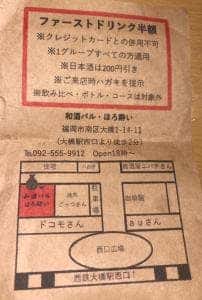 ファーストドリンク半額
※クレジットカードとの併用不可
※1グループすべての方適用
※日本酒は200円引き
※ご来店時ハガキを提示
※飲み比べ・ボトル・コースは対象外
和酒バル・ほろ酔い
福岡市南区大橋2-14-11
(大橋駅西口より徒歩2分)
℡092-555-9912 Open18時～
居酒屋ニパチさん
和酒バル
ほろ酔い
ごっつさん
駐車場
ドコモさん
auさん
西口広場
西鉄大橋駅西口!